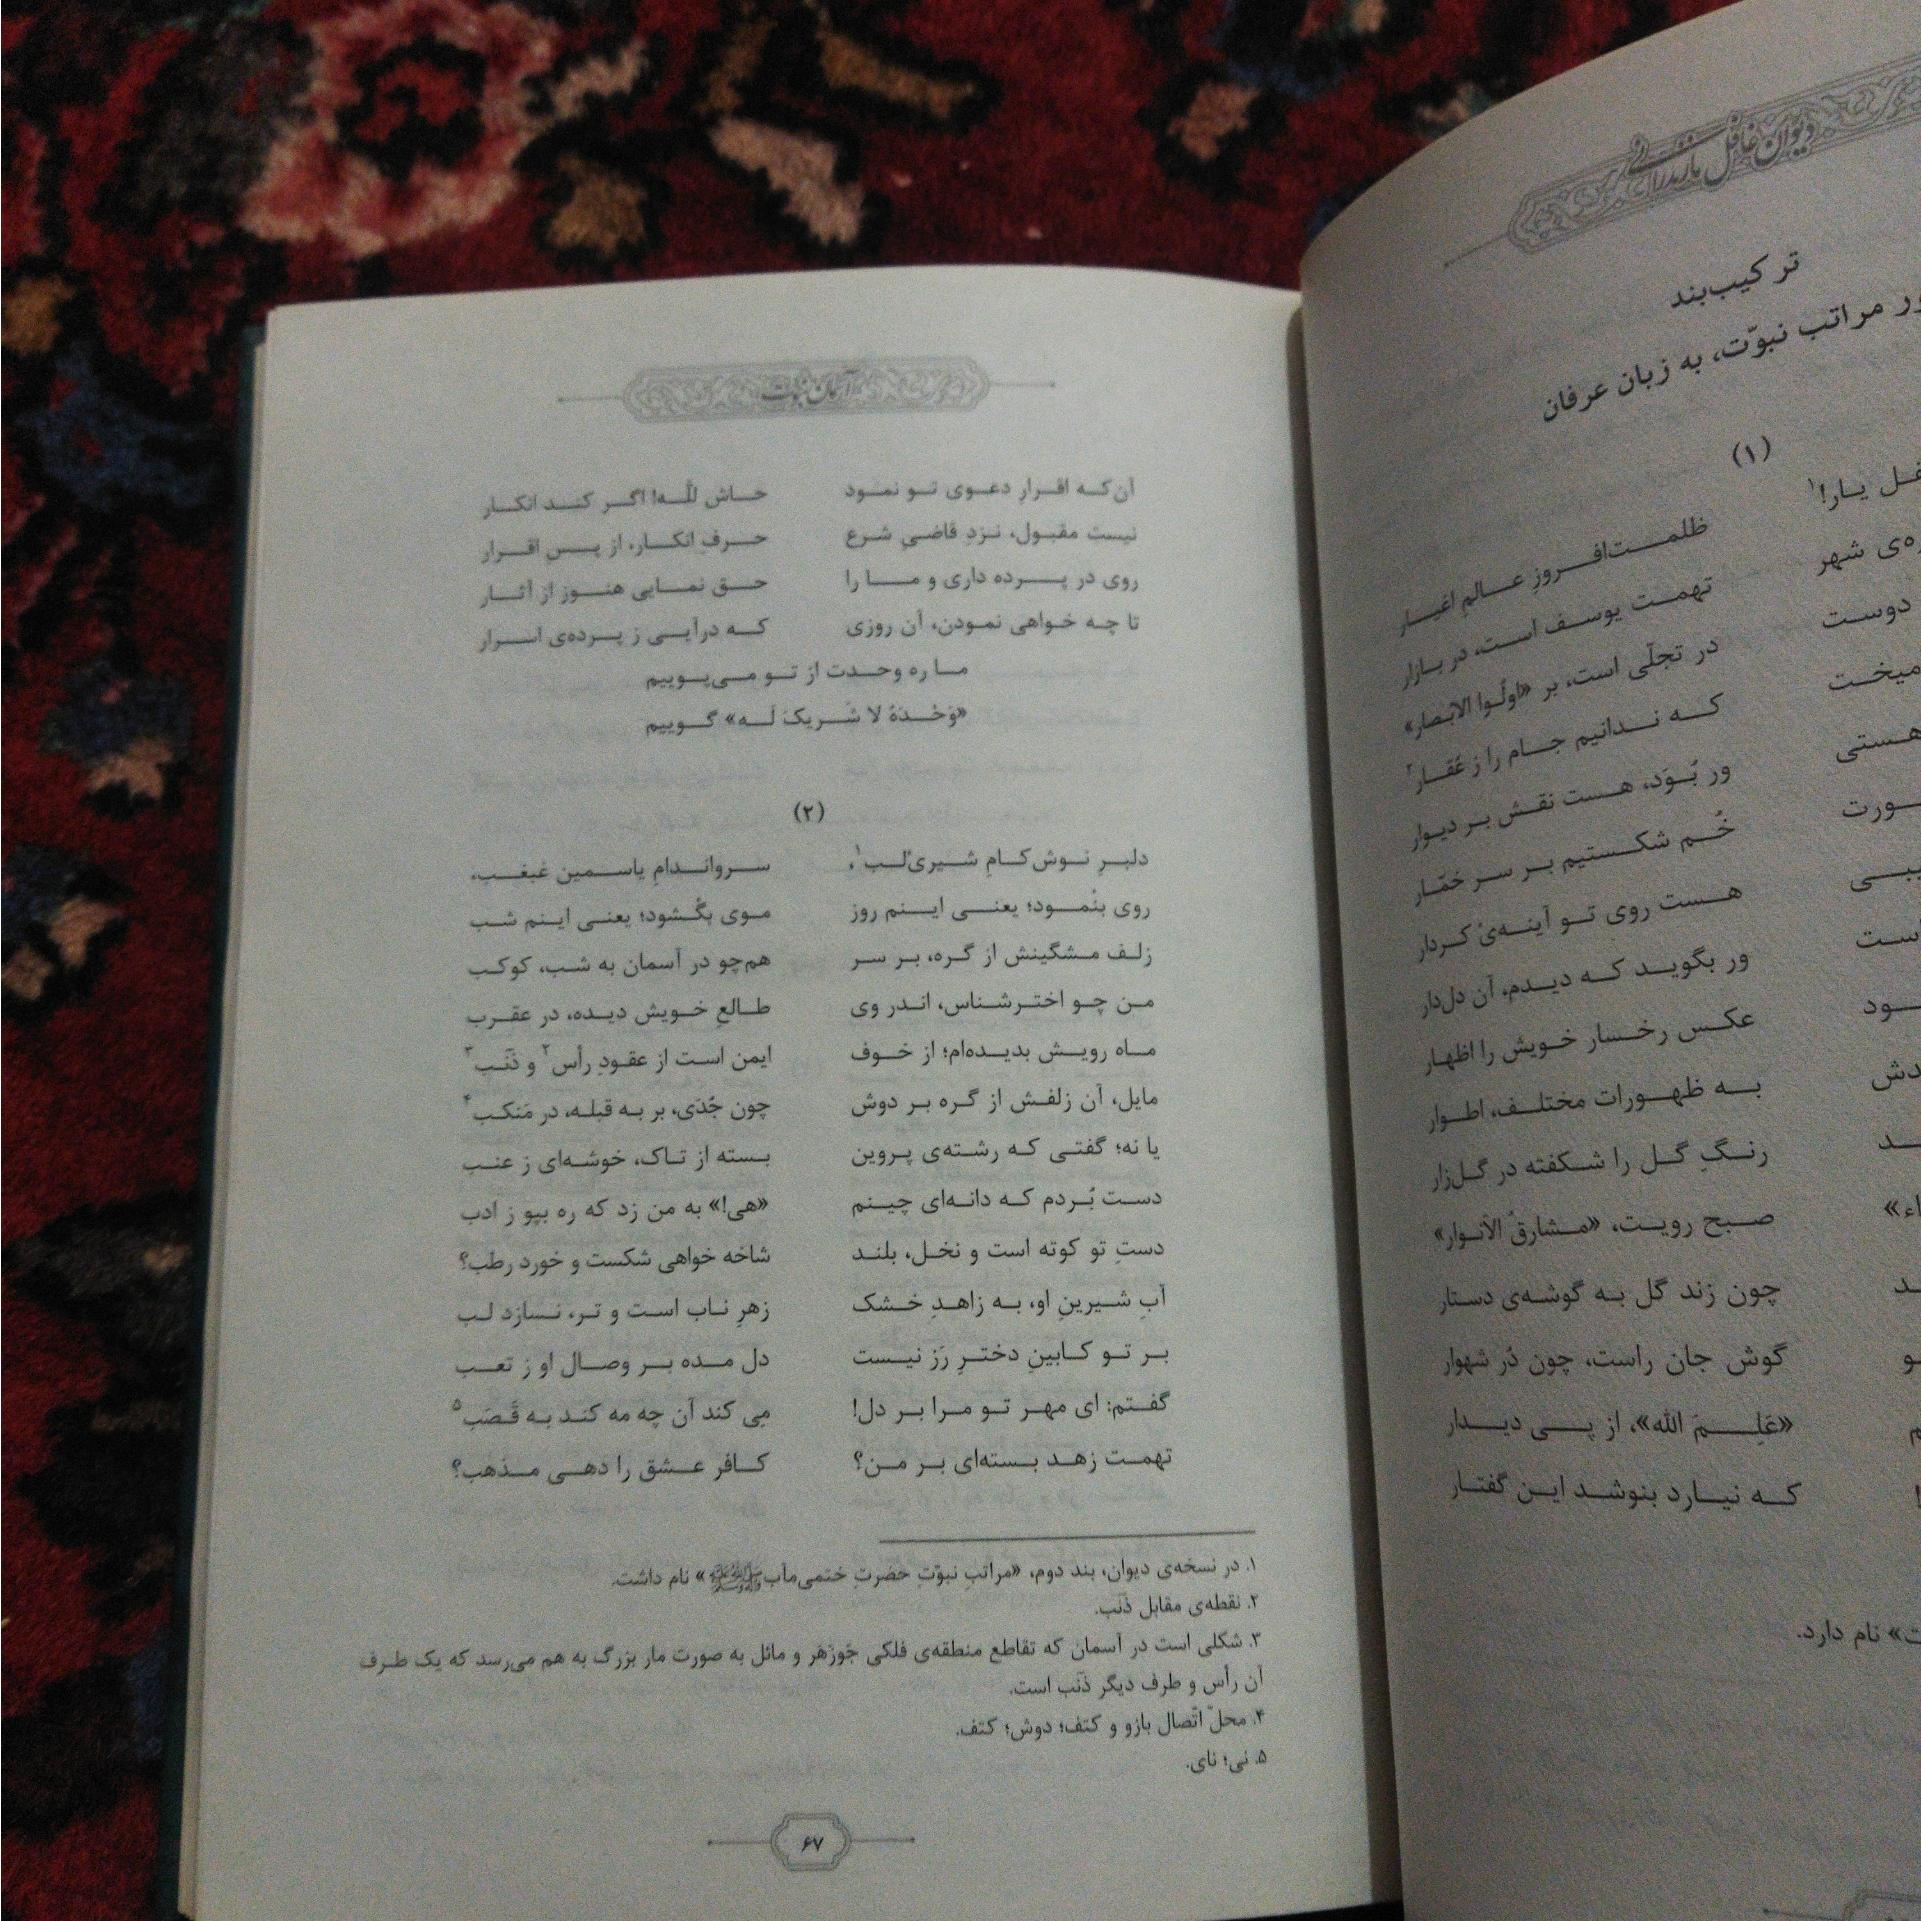 دیوان غافل مازندرانی
ترکیب‌بند
مراتب نبوّت، به زبان عرفان
(۱)
یار!۱ ظلمت‌افروزِ عالمِ اغیار
شهر تهمت یوسف است، در بازار
دوست در تجلّی است، بر «اولُوا الاَبصار»
که ندانیم جام را ز عُقار۲
هستی ور بُوَد، هست نقش بر دیوار
خُم شکستیم بر سر خمّار
هست روی تو آینه‌یْ کردار
ور بگوید که دیدم، آن دل‌دار
عکس رخسار خویش را اظهار
به ظهورات مختلف، اطوار
رنگِ گل را شکفته در گل‌زار
صبح رویت، «مشارقُ الاَنوار»
چون زند گل به گوشه‌ی دستار
گوش جان راست، چون دُر شهوار
«عَلِمَ الله»، از پی دیدار
که نیارد بنوشد این گفتار
نام دارد.
آسمان نبوّت
آن‌که اقرارِ دعوی تو نمود حاش للّه! اگر کند انکار
نیست مقبول، نزدِ قاضیِ شرع حرفِ انکار، از پسِ اقرار
روی در پرده داری و ما را حق نمایی هنوز از آثار
تا چه خواهی نمودن، آن روزی که درآیی ز پرده‌ی اسرار
ما ره وحدت از تو می‌پوییم
«وَحْدَهُ لا شَریکَ لَه» گوییم
(۲)
دلبرِ نوش‌کامِ شیریْ‌لب۱، سرواندامِ یاسمین غبغب،
روی بنْمود؛ یعنی اینم روز موی بگْشود؛ یعنی اینم شب
زلف مشگینش از گره، بر سر هم‌چو در آسمان به شب، کوکب
من چو اخترشناس، اندر وی طالعِ خویش دیده، در عقرب
ماه رویش بدیده‌ام؛ از خوف ایمن است از عقودِ رأس۲ و ذَنَب۳
مایل، آن زلفش از گره بر دوش چون جُدَی، بر به قبله، در مَنکب۴
یا نه؛ گفتی که رشته‌ی پروین بسته از تاک، خوشه‌ای ز عنب
دست بُردم که دانه‌ای چینم «هی!» به من زد که ره بپو ز ادب
دستِ تو کوته است و نخل، بلند شاخه خواهی شکست و خورد رطب؟
آبِ شیرینِ او، به زاهدِ خشک زهرِ ناب است و تر، نسازد لب
بر تو کابینِ دخترِ رَز نیست دل مده بر وصال او ز تعب
گفتم: ای مهر تو مرا بر دل! می کند آن چه مه کند به قَصَب۵
تهمت زهد بسته‌ای بر من؟ کافر عشق را دهی مذهب؟
۱. در نسخه‌ی دیوان، بند دوم، «مراتبِ نبوّتِ حضرتِ ختمی‌مآبﷺ» نام داشت.
۲. نقطه‌ی مقابل ذَنَب.
۳. شکلی است در آسمان که تقاطع منطقه‌ی فلکی جَوزَهَر و مائل به صورت مار بزرگ به هم می‌رسد که یک طرف
آن رأس و طرف دیگر ذَنَب است.
۴. محلّ اتّصال بازو و کتف؛ دوش؛ کتف.
۵. نی؛ نای.
۶۷